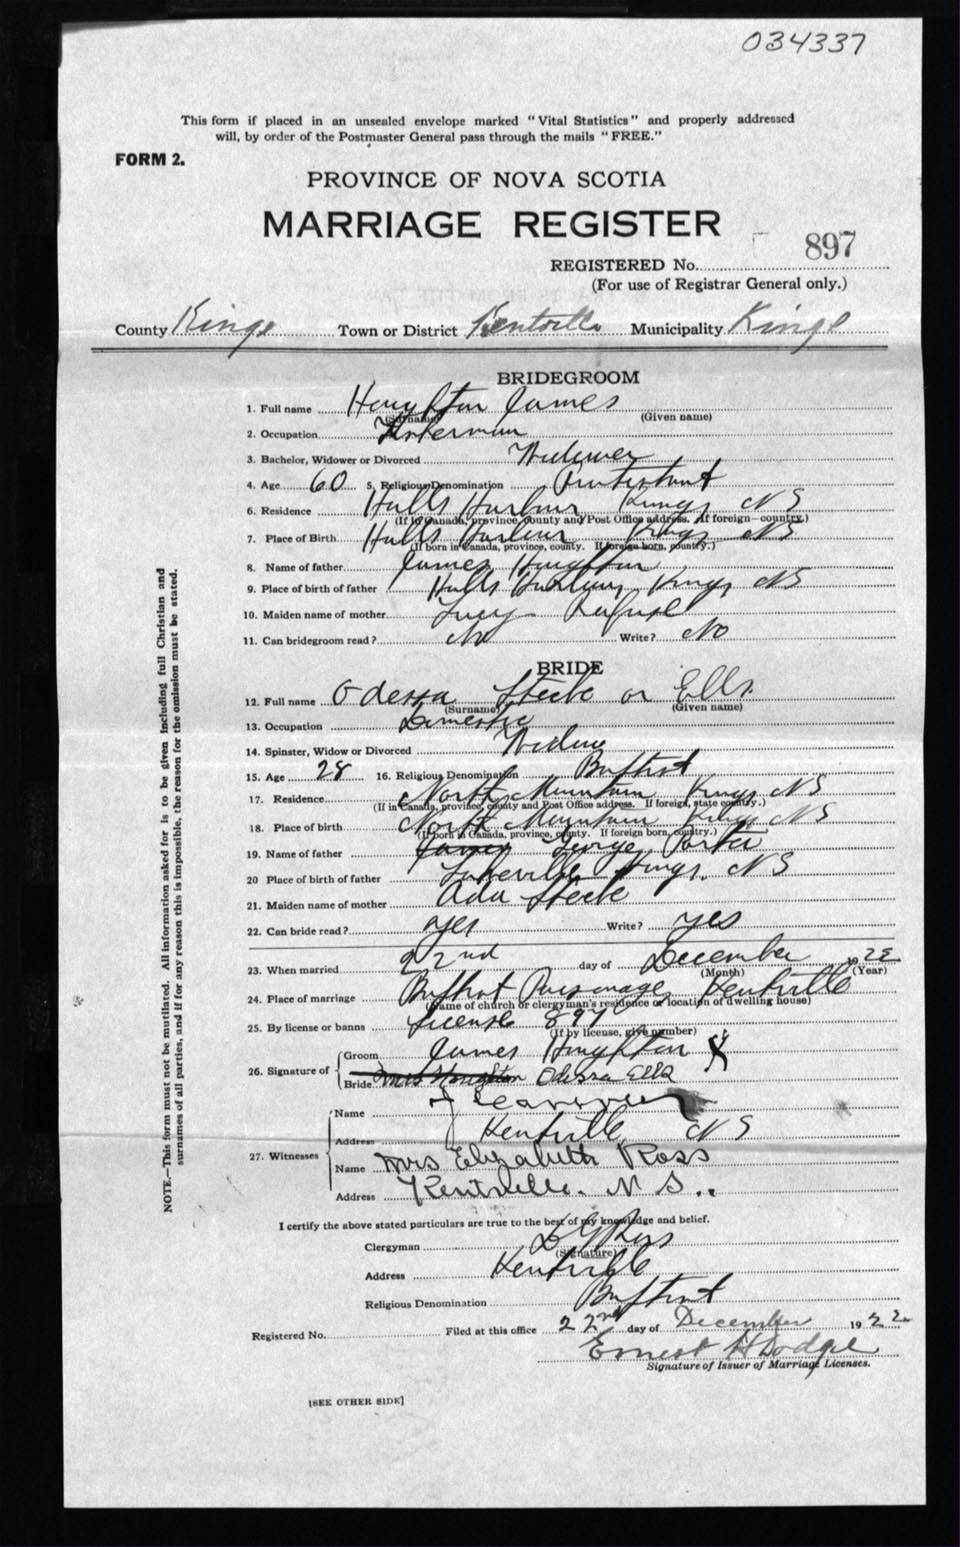 034337
This form if placed in an unsealed envelope marked "Vital Statistics" and properly addressed
will, by order of the Postmaster General pass through the mails "FREE."
FORM 2.
PROVINCE OF NOVA SCOTIA
MARRIAGE REGISTER
REGISTERED No. 897
(For use of Registrar General only.)
County Kings Town or District Kentville Municipality Kings
BRIDEGROOM
1. Full name Houghton James
(Surname) (Given name)
2. Occupation
3. Bachelor, Widower or Divorced Widower
4. Age 60 5. Religious Denomination Protestant
6. Residence Halls Harbour Kings NS
(If in Canada, province, county and Post Office address. If foreign—country.)
7. Place of Birth Halls Harbour Kings NS
(If born in Canada, province, county. If foreign born, country.)
8. Name of father James Houghton
9. Place of birth of father Halls Harbour Kings NS
10. Maiden name of mother Lucy
11. Can bridegroom read? No Write? No
BRIDE
12. Full name Odessa Steele or Ells
(Surname) (Given name)
13. Occupation Domestic
14. Spinster, Widow or Divorced Widow
15. Age 28 16. Religious Denomination Baptist
17. Residence North Mountain Kings NS
(If in Canada, province, county and Post Office address. If foreign, state country.)
18. Place of birth North Mountain Kings NS
(If born in Canada, province, county. If foreign born, country.)
19. Name of father James George Porter
20 Place of birth of father Lakeville Kings. NS
21. Maiden name of mother Ada Steele
22. Can bride read? yes Write? yes
23. When married 22nd day of December 1922
(Month) (Year)
24. Place of marriage Baptist Parsonage Kentville
(Name of church or clergyman's residence or location of dwelling house)
25. By license or banns License 897
(If by license, give number)
26. Signature of
Groom James Houghton X
Bride Mrs Houghton Odessa Ells
27. Witnesses
Name
Address Kentville NS
Name Mrs Elizabeth Ross
Address Kentville. N. S..
I certify the above stated particulars are true to the best of my knowledge and belief.
Clergyman
(Signature)
Address Kentville
Religious Denomination Baptist
Registered No. Filed at this office 22nd day of December 1922
Ernest H Dodge
Signature of Issuer of Marriage Licenses.
[SEE OTHER SIDE]
NOTE.—This form must not be mutilated. All information asked for is to be given including full Christian and
surnames of all parties, and if for any reason this is impossible, the reason for the omission must be stated.